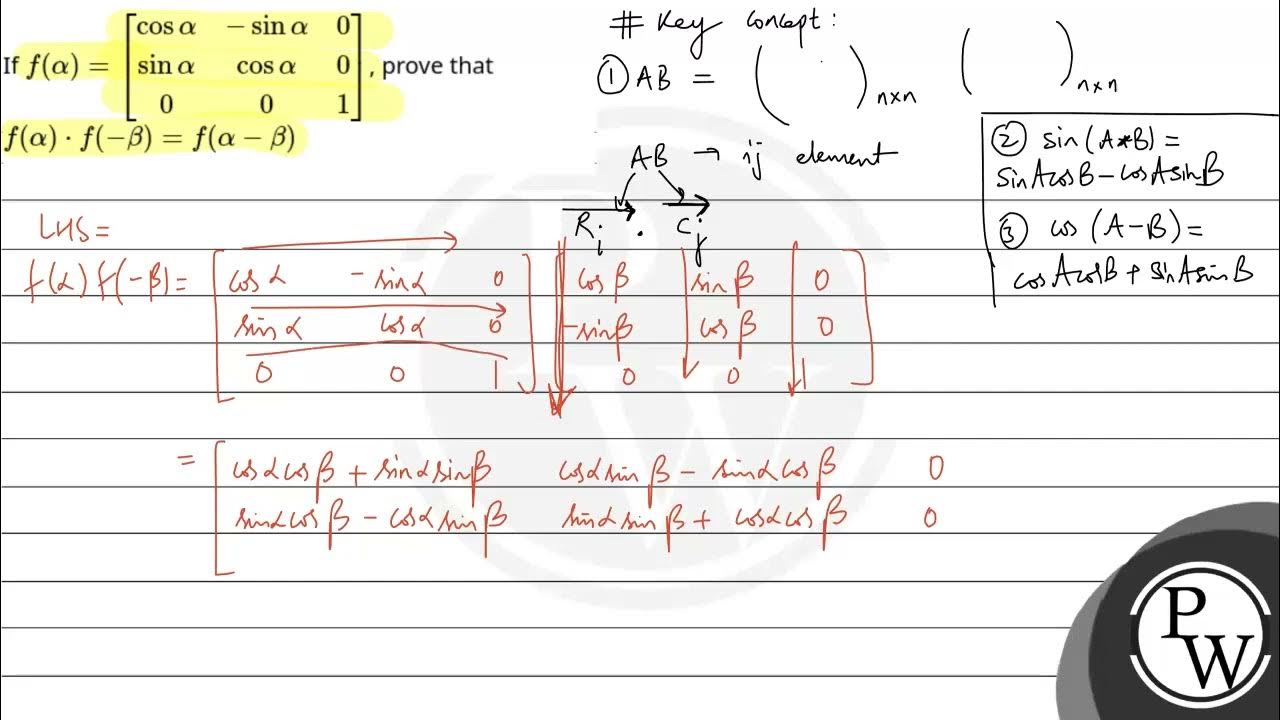 If f(α) = [cos α − sin α 0
sin α cos α 0
0 0 1] , prove that
f(α) · f(−β) = f(α − β)
# Key concept:
① AB = ( )n×n ( )n×n
AB → ij element
Ri . Cj
② sin(A-B) =
sinAcosB − cosAsinB
③ cos (A−B) =
cosAcosB + sinAsinB
LHS =
f(α) f(−β) = [cosα − sinα 0] [cosβ sinβ 0]
sinα cosα 0 −sinβ cosβ 0
0 0 1 0 0 1
= [cosαcosβ + sinαsinβ cosαsinβ − sinαcosβ 0
sinαcosβ − cosαsinβ sinαsinβ + cosαcosβ 0
P
W